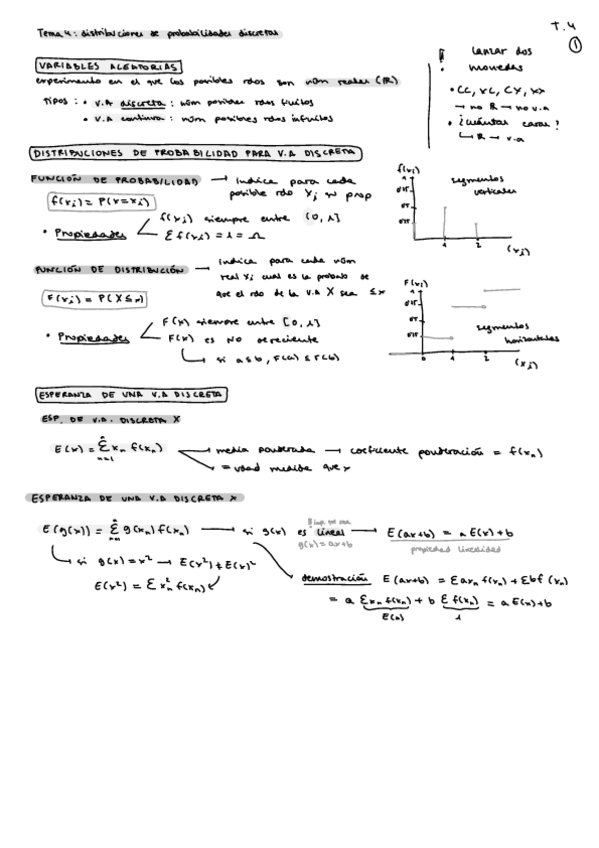 Tema 4: distribuciones de probabilidades discretas
T. 4
①
VARIABLES ALEATORIAS
experimento en el que los posibles rdos son núm reales (ℝ)
Tipos: • V.A discreta: núm posibles rdos finitos
• V.A continua: núm posibles rdos infinitos
lanzar dos
monedas
• CC, XC, CX, XX
→ no ℝ → no v.a
• ¿cuántas caras?
↳ ℝ → v.a
DISTRIBUCIONES DE PROBABILIDAD PARA V.A DISCRETA
FUNCIÓN DE PROBABILIDAD → Indica para cada
posible rdo Xi su prop
f(xi) = P(X=xi)
• Propiedades
f(xi) siempre entre [0,1]
Σf(xi) = 1 = Ω
f(xi)
1
segmentos
verticales
1 2
(xi)
FUNCIÓN DE DISTRIBUCIÓN → Indica para cada núm
real xi cual es la probab de
que el rdo de la V.A X sea ≤x
F(xi) = P(X≤x)
• Propiedades
F(x) siempre entre [0,1]
F(x) es NO decreciente
↳ si a≤b, F(a) ≤ F(b)
F(xi)
1
segmentos
horizontales
0 1 2
(xi)
ESPERANZA DE UNA V.A DISCRETA
ESP. DE V.A. DISCRETA X
E(x) = Σ xn f(xn) → media ponderada → coeficiente ponderación = f(xn)
n=1
= udad medida que x
ESPERANZA DE UNA V.A DISCRETA X
E(g(x)) = Σ g(xn) f(xn) → si g(x) es lineal → E(ax+b) = a E(x)+b
g(x) = ax+b
propiedad linealidad
↳ si g(x) = x² → E(x²) ≠ E(x)²
E(x²) = Σ xn² f(xn)
demostración E(ax+b) = Σaxn f(xn) + Σbf(xn)
= a Σxn f(xn) + b Σ f(xn) = a E(x)+b
E(x) 1